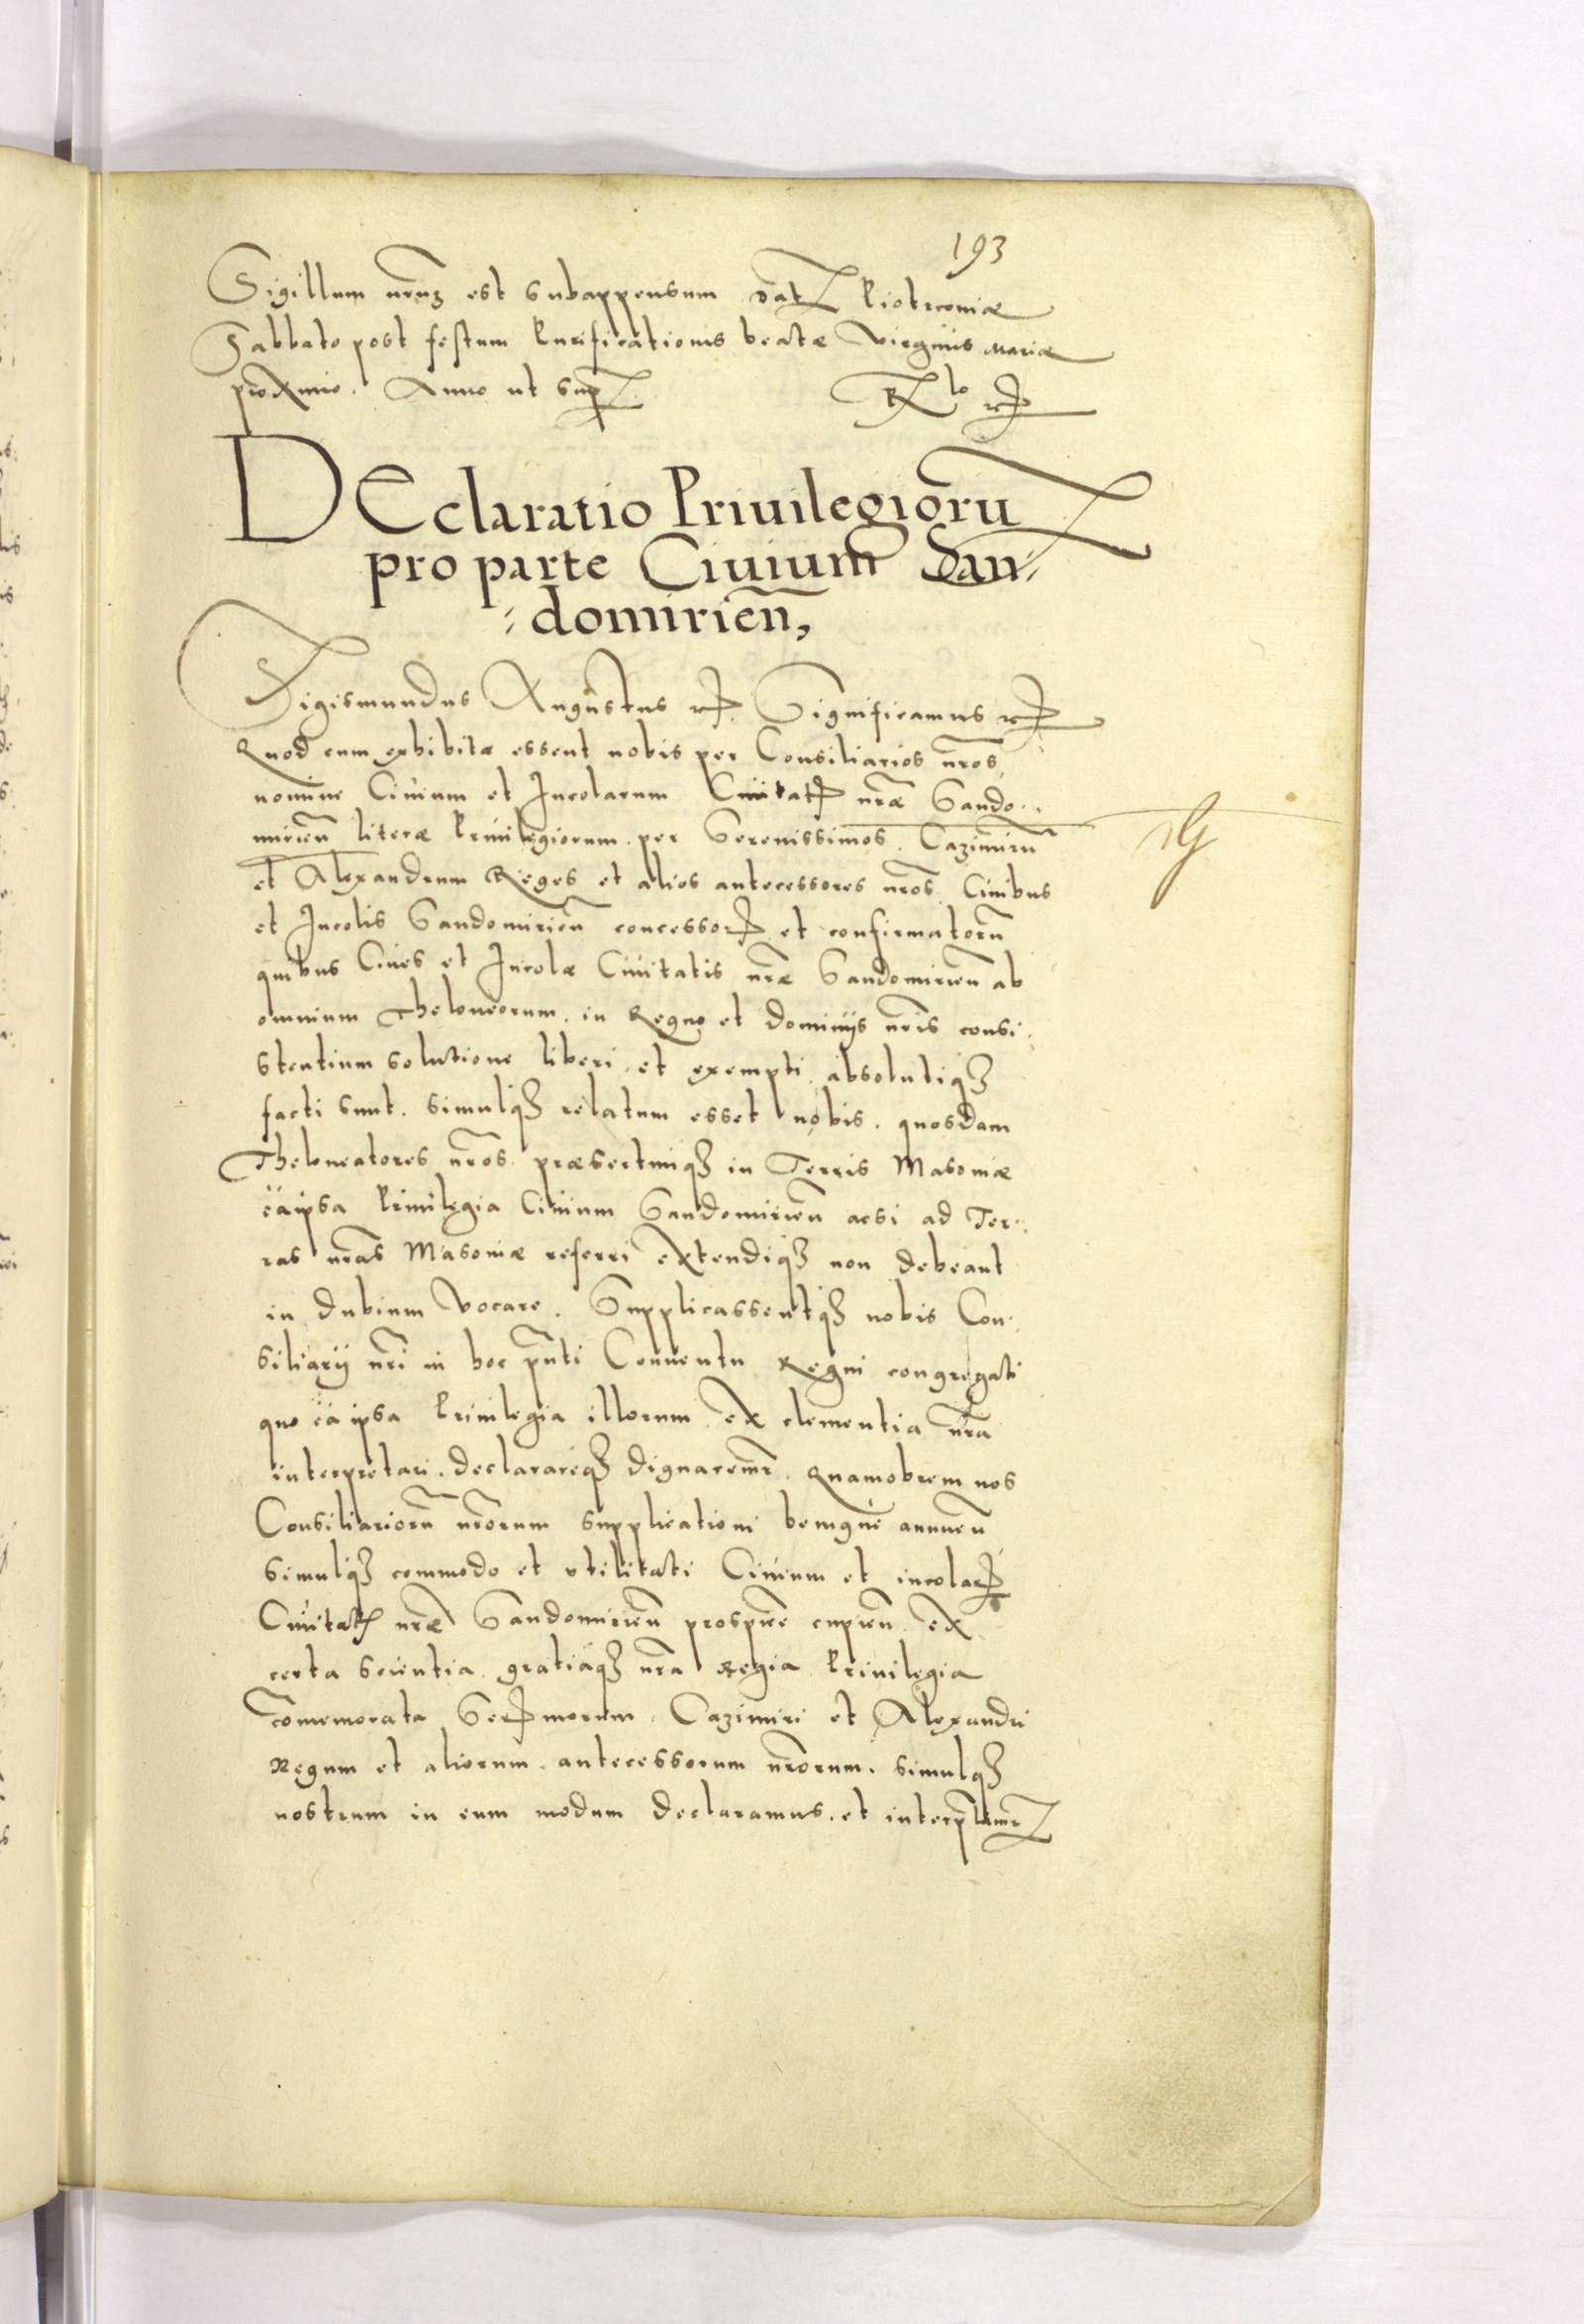 193
Sigillum nrūm est subappensum Dat Piotrcoviæ
Sabbato post festum Purificationis beatæ Virginis Mariæ
proximo. Anno ut sup
DEclaratio Priuilegiorū
pro parte Ciuium San-
-domirien̄,
Sigismundus Augustus etc. Significamus etc.
Quod cum exhibitæ essent nobis per Consiliarios nr̄os
nomine Ciuium et Incolarum Ciuitatis nr̄æ Sando-
mirien̄ literæ Priuilegiorum per Serenissimos. Cazimirū
et Alexandrum Reges et alios antecessores nr̄os Ciuibus
et Incolis Sandomirien̄ concessorum et confirmatorū
quibus Ciues et Incolæ Ciuitatis nr̄æ Sandomirien̄ ab
omnium Theloneorum. in Regno et dominijs nr̄is consi-
stentium solutione liberi et exempti absolutiq̃
facti sunt. simulq̃ relatum esset nobis. quosdam
Theloneatores nr̄os præsertimq̃ in Terris Masoviæ
ea ipsa Priuilegia Ciuium Sandomirien̄ acsi ad Ter-
ras nr̄as Masoviæ referri extendiq̃ non debeant
in dubium vocare. Supplicassentq̃ nobis Con-
siliarij nr̄i in hoc pn̄ti Conuentu Regni congregati
quo ea ipsa Priuilegia illorum ex clementia nr̄a
interpretari. declarareq̃ dignaremr. Quamobrem nos
Consiliariorū nr̄orum supplicationi benigne annuen̄
simulq̃ commodo et vtilitati Ciuium et incolarum
Ciuitatis nr̄æ Sandomirien̄ prospicere cupien̄. ex
certa scientia gratiaq̃ nr̄a Regia Priuilegia
com̄emorata Sermorum. Cazimiri et Alexandri
Regum et aliorum antecessorum nr̄orum. simulq̃
nostrum in eum modum declaramus. et interp̄tamr